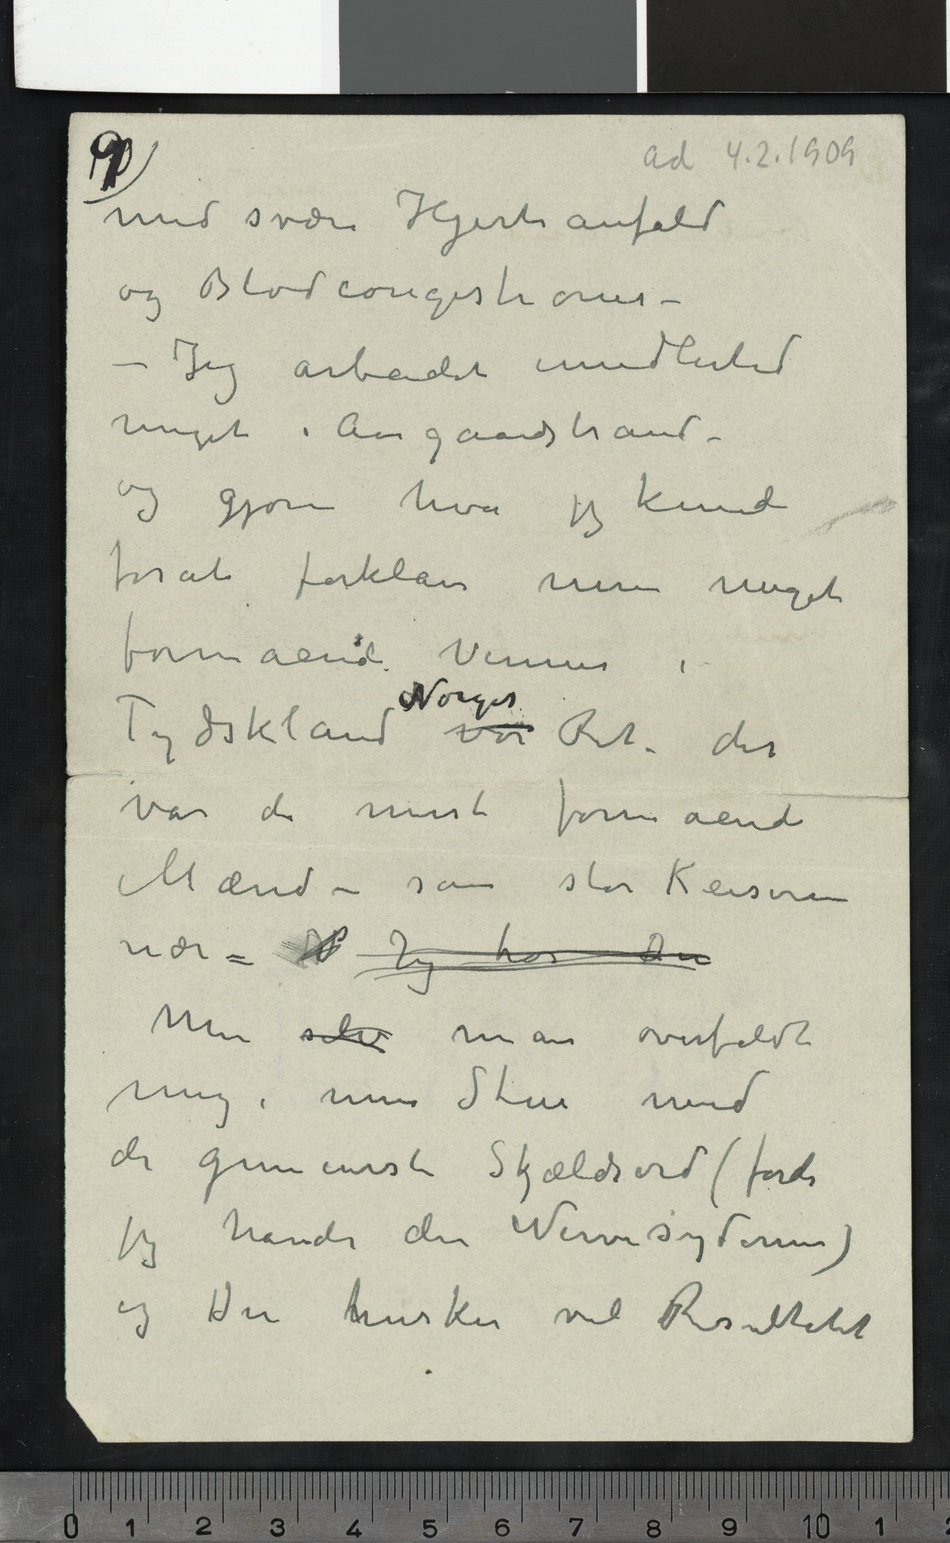 9)
ad 4.2.1909
med svære Hjerteanfald
og Blodcongestioner –
– Jeg arbeidet imidlertid
meget i Aasgaardstrand –
og gjorde hva jeg kunde
forat forklare mine meget
formaaende Venner i
Tydskland vor Norges Ret – det
var de mest formaaende
Mænd – som står Keiseren
nær – Jeg har Du
Men selv man overfaldt
meg i min Stue med
de gemeneste Skjældsord (fordi
jeg havde den Nervesygdommen)
og Du husker vel Resultatet
0 1 2 3 4 5 6 7 8 9 10 1 2